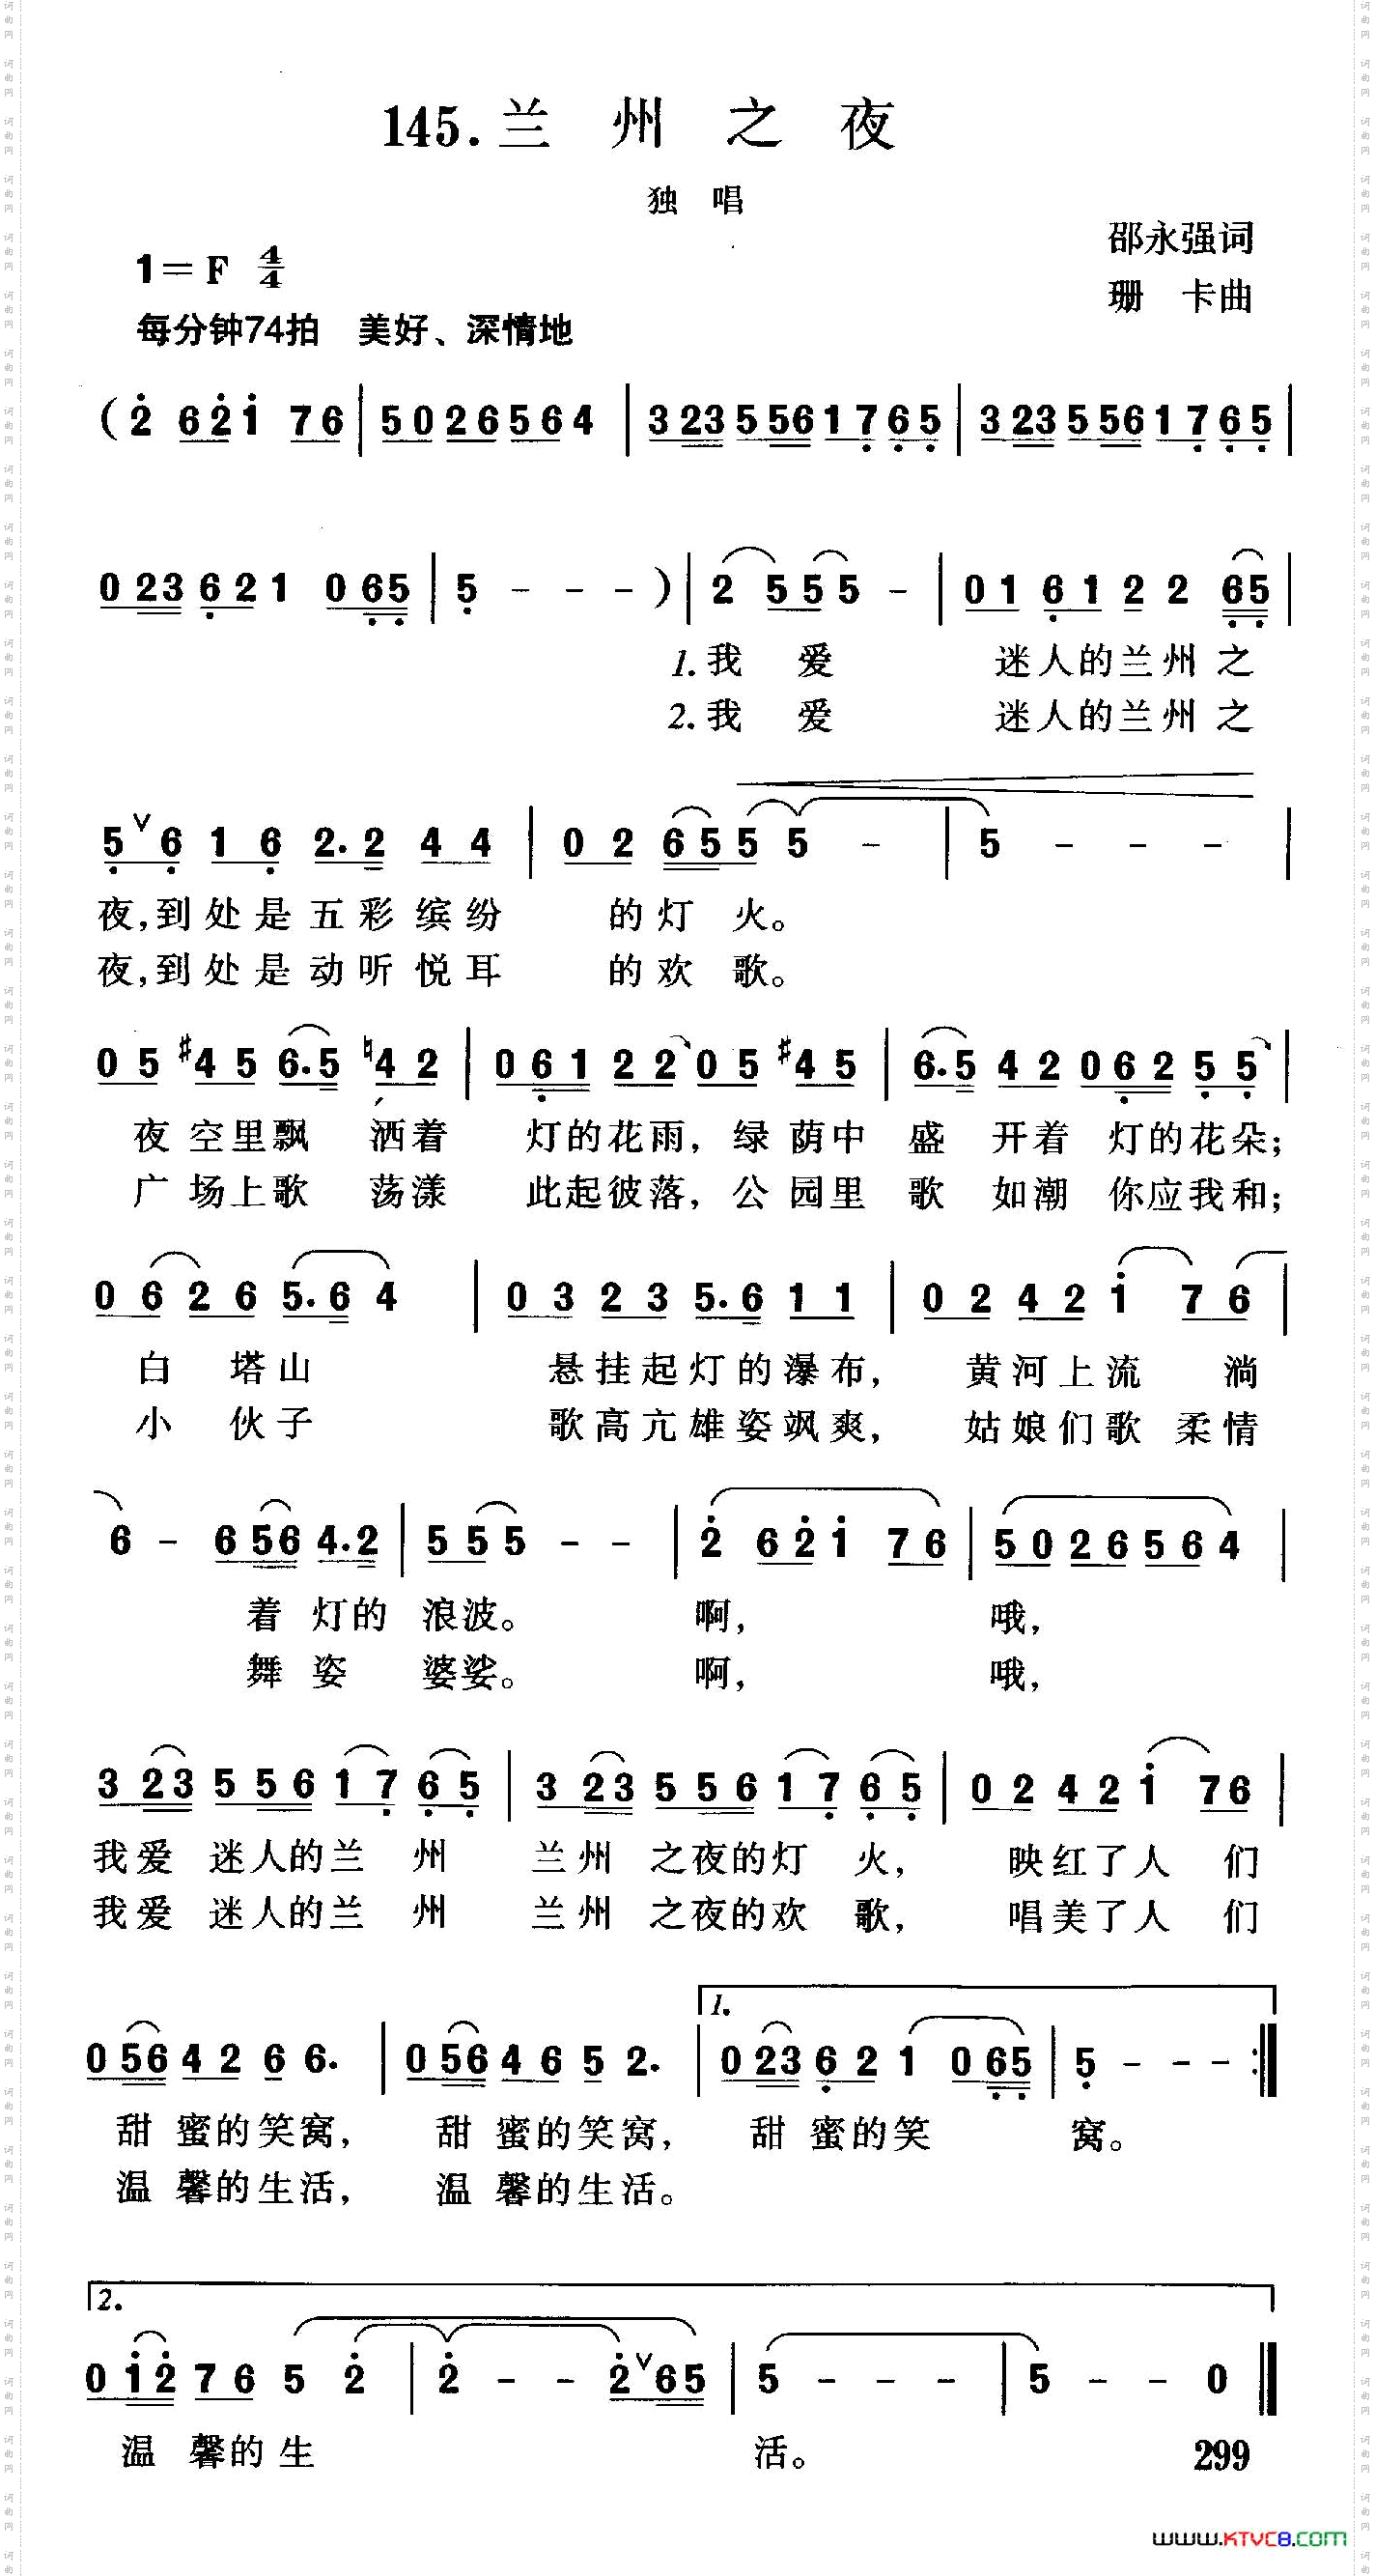 145.兰州之夜
独唱
邵永强词
1=F 4/4
珊 卡曲
每分钟74拍 美好、深情地
(2 621 76|5026564|3235561765|3235561765|
023621 065|5 - - -)|2 555 -|01 612 2 65|
1.我爱 迷人的兰州之
2.我爱 迷人的兰州之
5∨6 16 2.2 44|02 655 5 -|5 - - -|
夜,到处是五彩缤纷 的灯火。
夜,到处是动听悦耳 的欢歌。
05 #45 6.5 ♮42|061 22 05 #45|6.5 42 062 55|
夜空里飘洒着 灯的花雨,绿荫中盛开着 灯的花朵;
广场上歌荡漾 此起彼落,公园里歌如潮 你应我和;
06 26 5.6 4|03 23 5.6 11|02 42 1 76|
白塔山 悬挂起灯的瀑布,黄河上流淌
小伙子 歌高亢雄姿飒爽,姑娘们歌柔情
6 - 656 4.2|555 - -|2 621 76|5026564|
着灯的浪波。啊, 哦,
舞姿婆娑。啊, 哦,
323 556 17 65|323 556 17 65|02 42 1 76|
我爱迷人的兰州 兰州之夜的灯火, 映红了人们
我爱迷人的兰州 兰州之夜的欢歌, 唱美了人们
1.
056 42 6 6.|056 46 5 2.|023 62 1 065|5 - - -:|
甜蜜的笑窝, 甜蜜的笑窝, 甜蜜的笑窝。
温馨的生活, 温馨的生活。
2.
012 76 5 2|2 - - 2∨65|5 - - -|5 - - 0|
温馨的生 活。
299
www.KTVC8.com